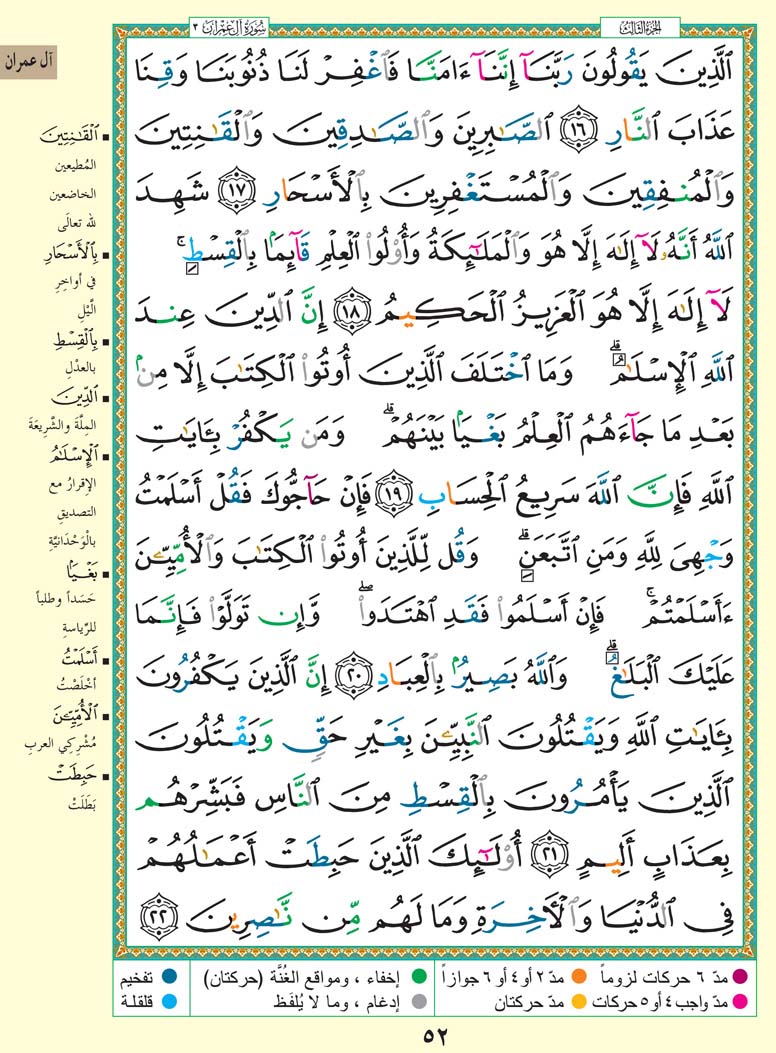 الجزء الثالث
سورة آل عمران ٣
ٱلَّذِينَ يَقُولُونَ رَبَّنَآ إِنَّنَآ ءَامَنَّا فَٱغْفِرْ لَنَا ذُنُوبَنَا وَقِنَا
عَذَابَ ٱلنَّارِ ١٦ ٱلصَّٰبِرِينَ وَٱلصَّٰدِقِينَ وَٱلْقَٰنِتِينَ
وَٱلْمُنفِقِينَ وَٱلْمُسْتَغْفِرِينَ بِٱلْأَسْحَارِ ١٧ شَهِدَ
ٱللَّهُ أَنَّهُۥ لَآ إِلَٰهَ إِلَّا هُوَ وَٱلْمَلَٰٓئِكَةُ وَأُو۟لُوا۟ ٱلْعِلْمِ قَآئِمًۢا بِٱلْقِسْطِ ۚ
لَآ إِلَٰهَ إِلَّا هُوَ ٱلْعَزِيزُ ٱلْحَكِيمُ ١٨ إِنَّ ٱلدِّينَ عِندَ
ٱللَّهِ ٱلْإِسْلَٰمُ ۗ وَمَا ٱخْتَلَفَ ٱلَّذِينَ أُوتُوا۟ ٱلْكِتَٰبَ إِلَّا مِنۢ
بَعْدِ مَا جَآءَهُمُ ٱلْعِلْمُ بَغْيًۢا بَيْنَهُمْ ۗ وَمَن يَكْفُرْ بِـَٔايَٰتِ
ٱللَّهِ فَإِنَّ ٱللَّهَ سَرِيعُ ٱلْحِسَابِ ١٩ فَإِنْ حَآجُّوكَ فَقُلْ أَسْلَمْتُ
وَجْهِىَ لِلَّهِ وَمَنِ ٱتَّبَعَنِ ۗ وَقُل لِّلَّذِينَ أُوتُوا۟ ٱلْكِتَٰبَ وَٱلْأُمِّيِّـۧنَ
ءَأَسْلَمْتُمْ ۚ فَإِنْ أَسْلَمُوا۟ فَقَدِ ٱهْتَدَوا۟ ۖ وَّإِن تَوَلَّوْا۟ فَإِنَّمَا
عَلَيْكَ ٱلْبَلَٰغُ ۗ وَٱللَّهُ بَصِيرٌۢ بِٱلْعِبَادِ ٢٠ إِنَّ ٱلَّذِينَ يَكْفُرُونَ
بِـَٔايَٰتِ ٱللَّهِ وَيَقْتُلُونَ ٱلنَّبِيِّـۧنَ بِغَيْرِ حَقٍّ وَيَقْتُلُونَ
ٱلَّذِينَ يَأْمُرُونَ بِٱلْقِسْطِ مِنَ ٱلنَّاسِ فَبَشِّرْهُم
بِعَذَابٍ أَلِيمٍ ٢١ أُو۟لَٰٓئِكَ ٱلَّذِينَ حَبِطَتْ أَعْمَٰلُهُمْ
فِى ٱلدُّنْيَا وَٱلْءَاخِرَةِ وَمَا لَهُم مِّن نَّٰصِرِينَ ٢٢
آل عمران
ٱلْقَٰنِتِينَ
المُطيعين
الخاضعين
لله تعالَى
بِٱلْأَسْحَارِ
في أواخِرِ
اللَّيْلِ
بِٱلْقِسْطِ
بالعدْلِ
ٱلدِّينَ
المِلَّةَ والشَّرِيعَةَ
ٱلْإِسْلَٰمُ
الإقرارُ مع
التصديقِ
بالْوَحْدَانيَّةِ
بَغْيًۢا
حَسَداً وطلباً
للرِّياسةِ
أَسْلَمْتُ
أخْلَصْتُ
ٱلْأُمِّيِّـۧنَ
مُشْرِكي العربِ
حَبِطَتْ
بَطَلَتْ
مدّ ٦ حركات لزوماً
مدّ ٢ أو ٤ أو ٦ جوازاً
إخفاء ، ومواقع الغُنَّة (حركتان)
تفخيم
مدّ واجب ٤ أو ٥ حركات
مدّ حركتان
إدغام ، وما لا يُلفَظ
قلقلة
٥٢